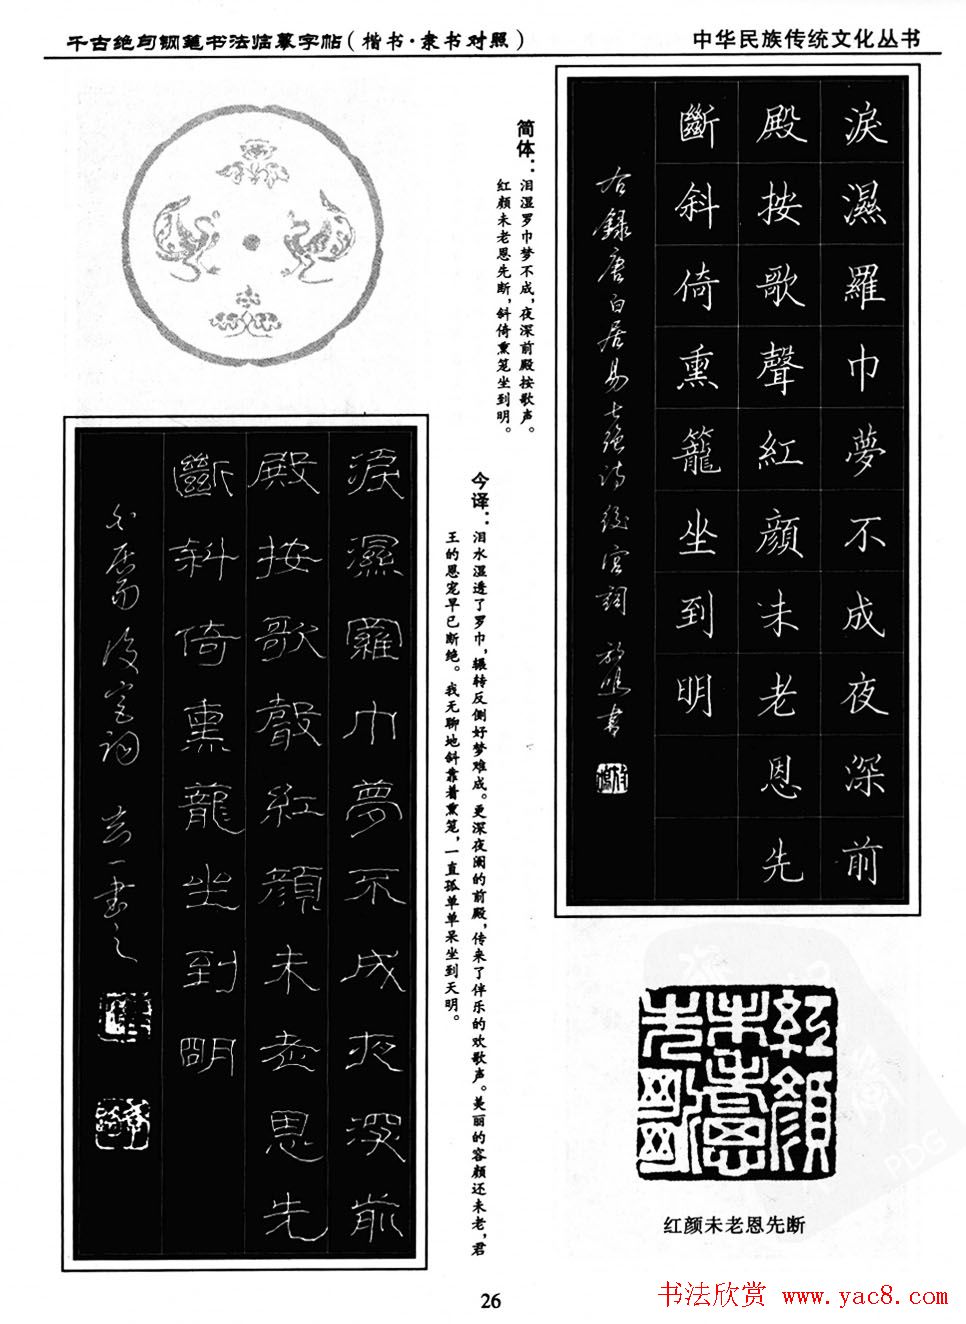 千古绝句钢笔书法临摹字帖(楷书·隶书对照)
中华民族传统文化丛书
淚濕羅巾夢不成夜深前
殿按歌聲紅顏未老恩先
斷斜倚熏籠坐到明
右錄唐白居易七絕詩後宮詞
简体:泪湿罗巾梦不成,夜深前殿按歌声。
红颜未老恩先断,斜倚熏笼坐到明。
今译:泪水湿透了罗巾,辗转反侧好梦难成。更深夜阑的前殿,传来了伴乐的欢歌声。美丽的容颜还未老,君
王的恩宠早已断绝。我无聊地斜靠着熏笼,一直孤单单呆坐到天明。
淚濕羅巾夢不成夜深前
殿按歌聲紅顏未老恩先
斷斜倚熏龍坐到明
白居易後宮詞
紅顏未老恩先斷
红颜未老恩先断
PDG
26
书法欣赏 www.yac8.com